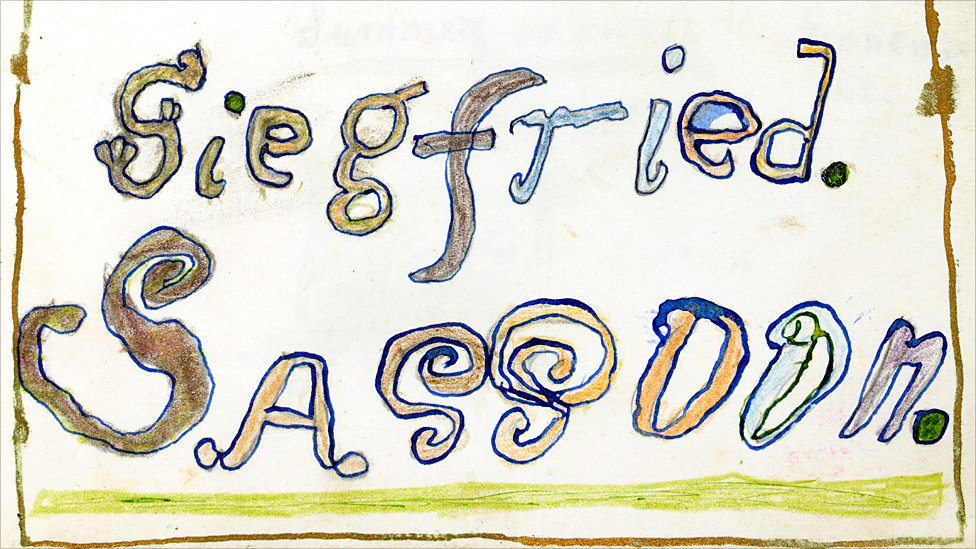 Siegfried.
Sassoon.